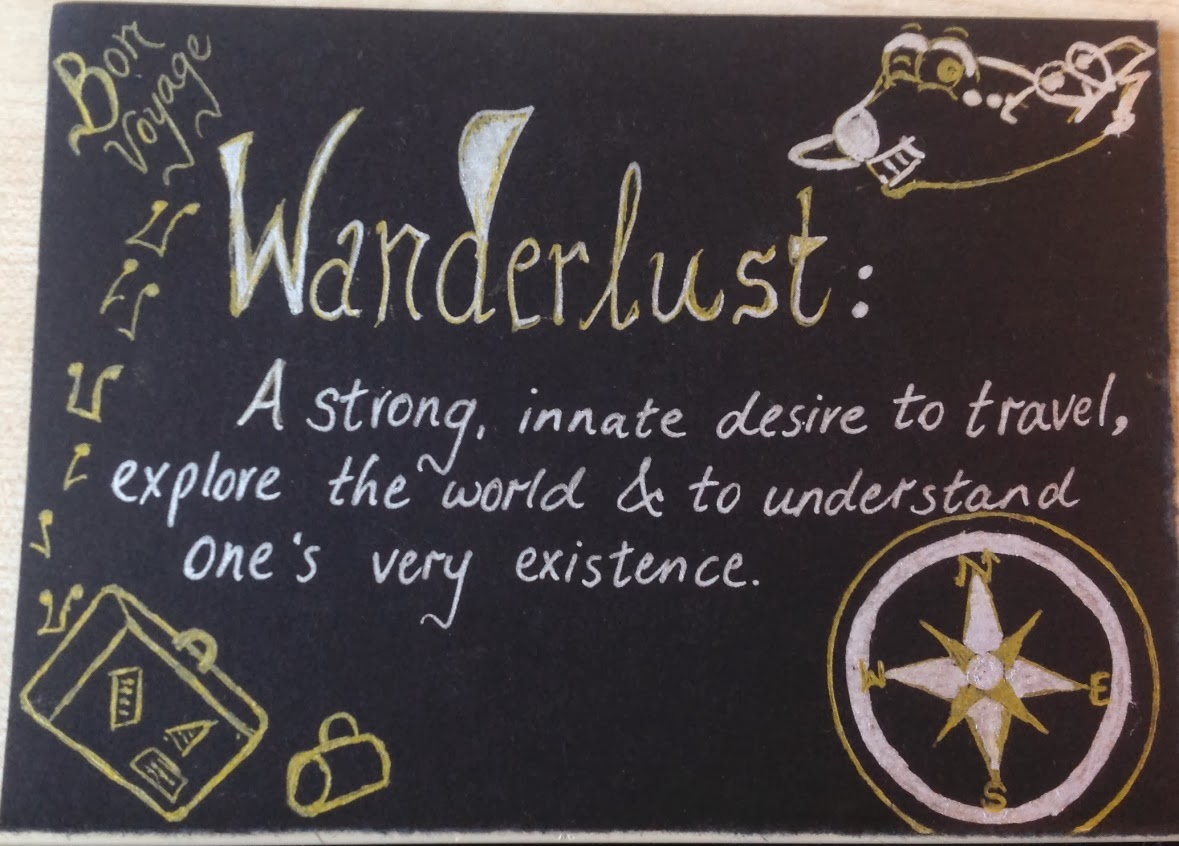 Bon
Voyage
Wanderlust:
A strong, innate desire to travel,
explore the world & to understand
one's very existence.
N
W E
S